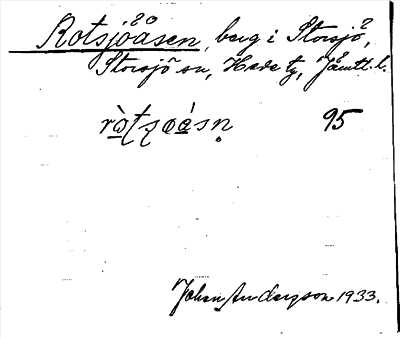 Rotsjöåsen, berg i Storsjö,
Storsjö sn, Hede tg, Jämtl. l.
95
Johan Andersson 1933.